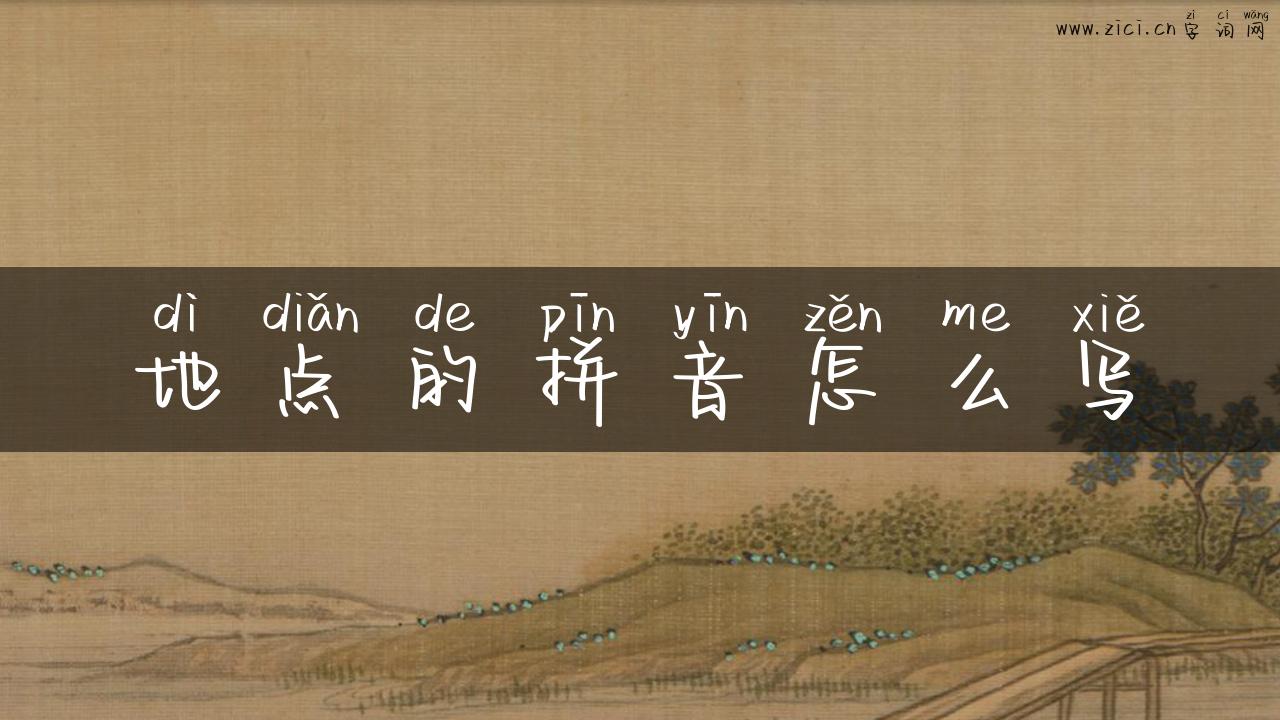 zì cí wǎng
www.zici.cn字词网
dì diǎn de pīn yīn zěn me xiě
地点的拼音怎么写